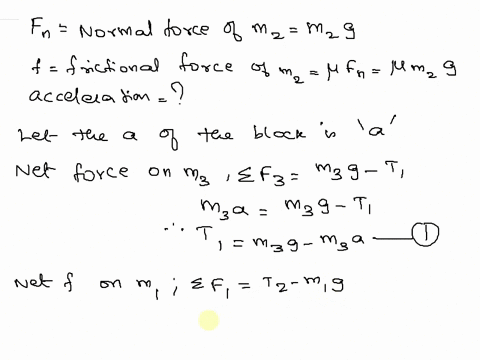 Fn = Normal force of m2 = m2 g
f = frictional force of m2 = μ Fn = μ m2 g
acceleration = ?
Let the a of the block is 'a'
Net force on m3 , ΣF3 = m3 g - T1
m3 a = m3 g - T1
∴ T1 = m3 g - m3 a — ①
Net f on m1 ; ΣF1 = T2 - m1 g